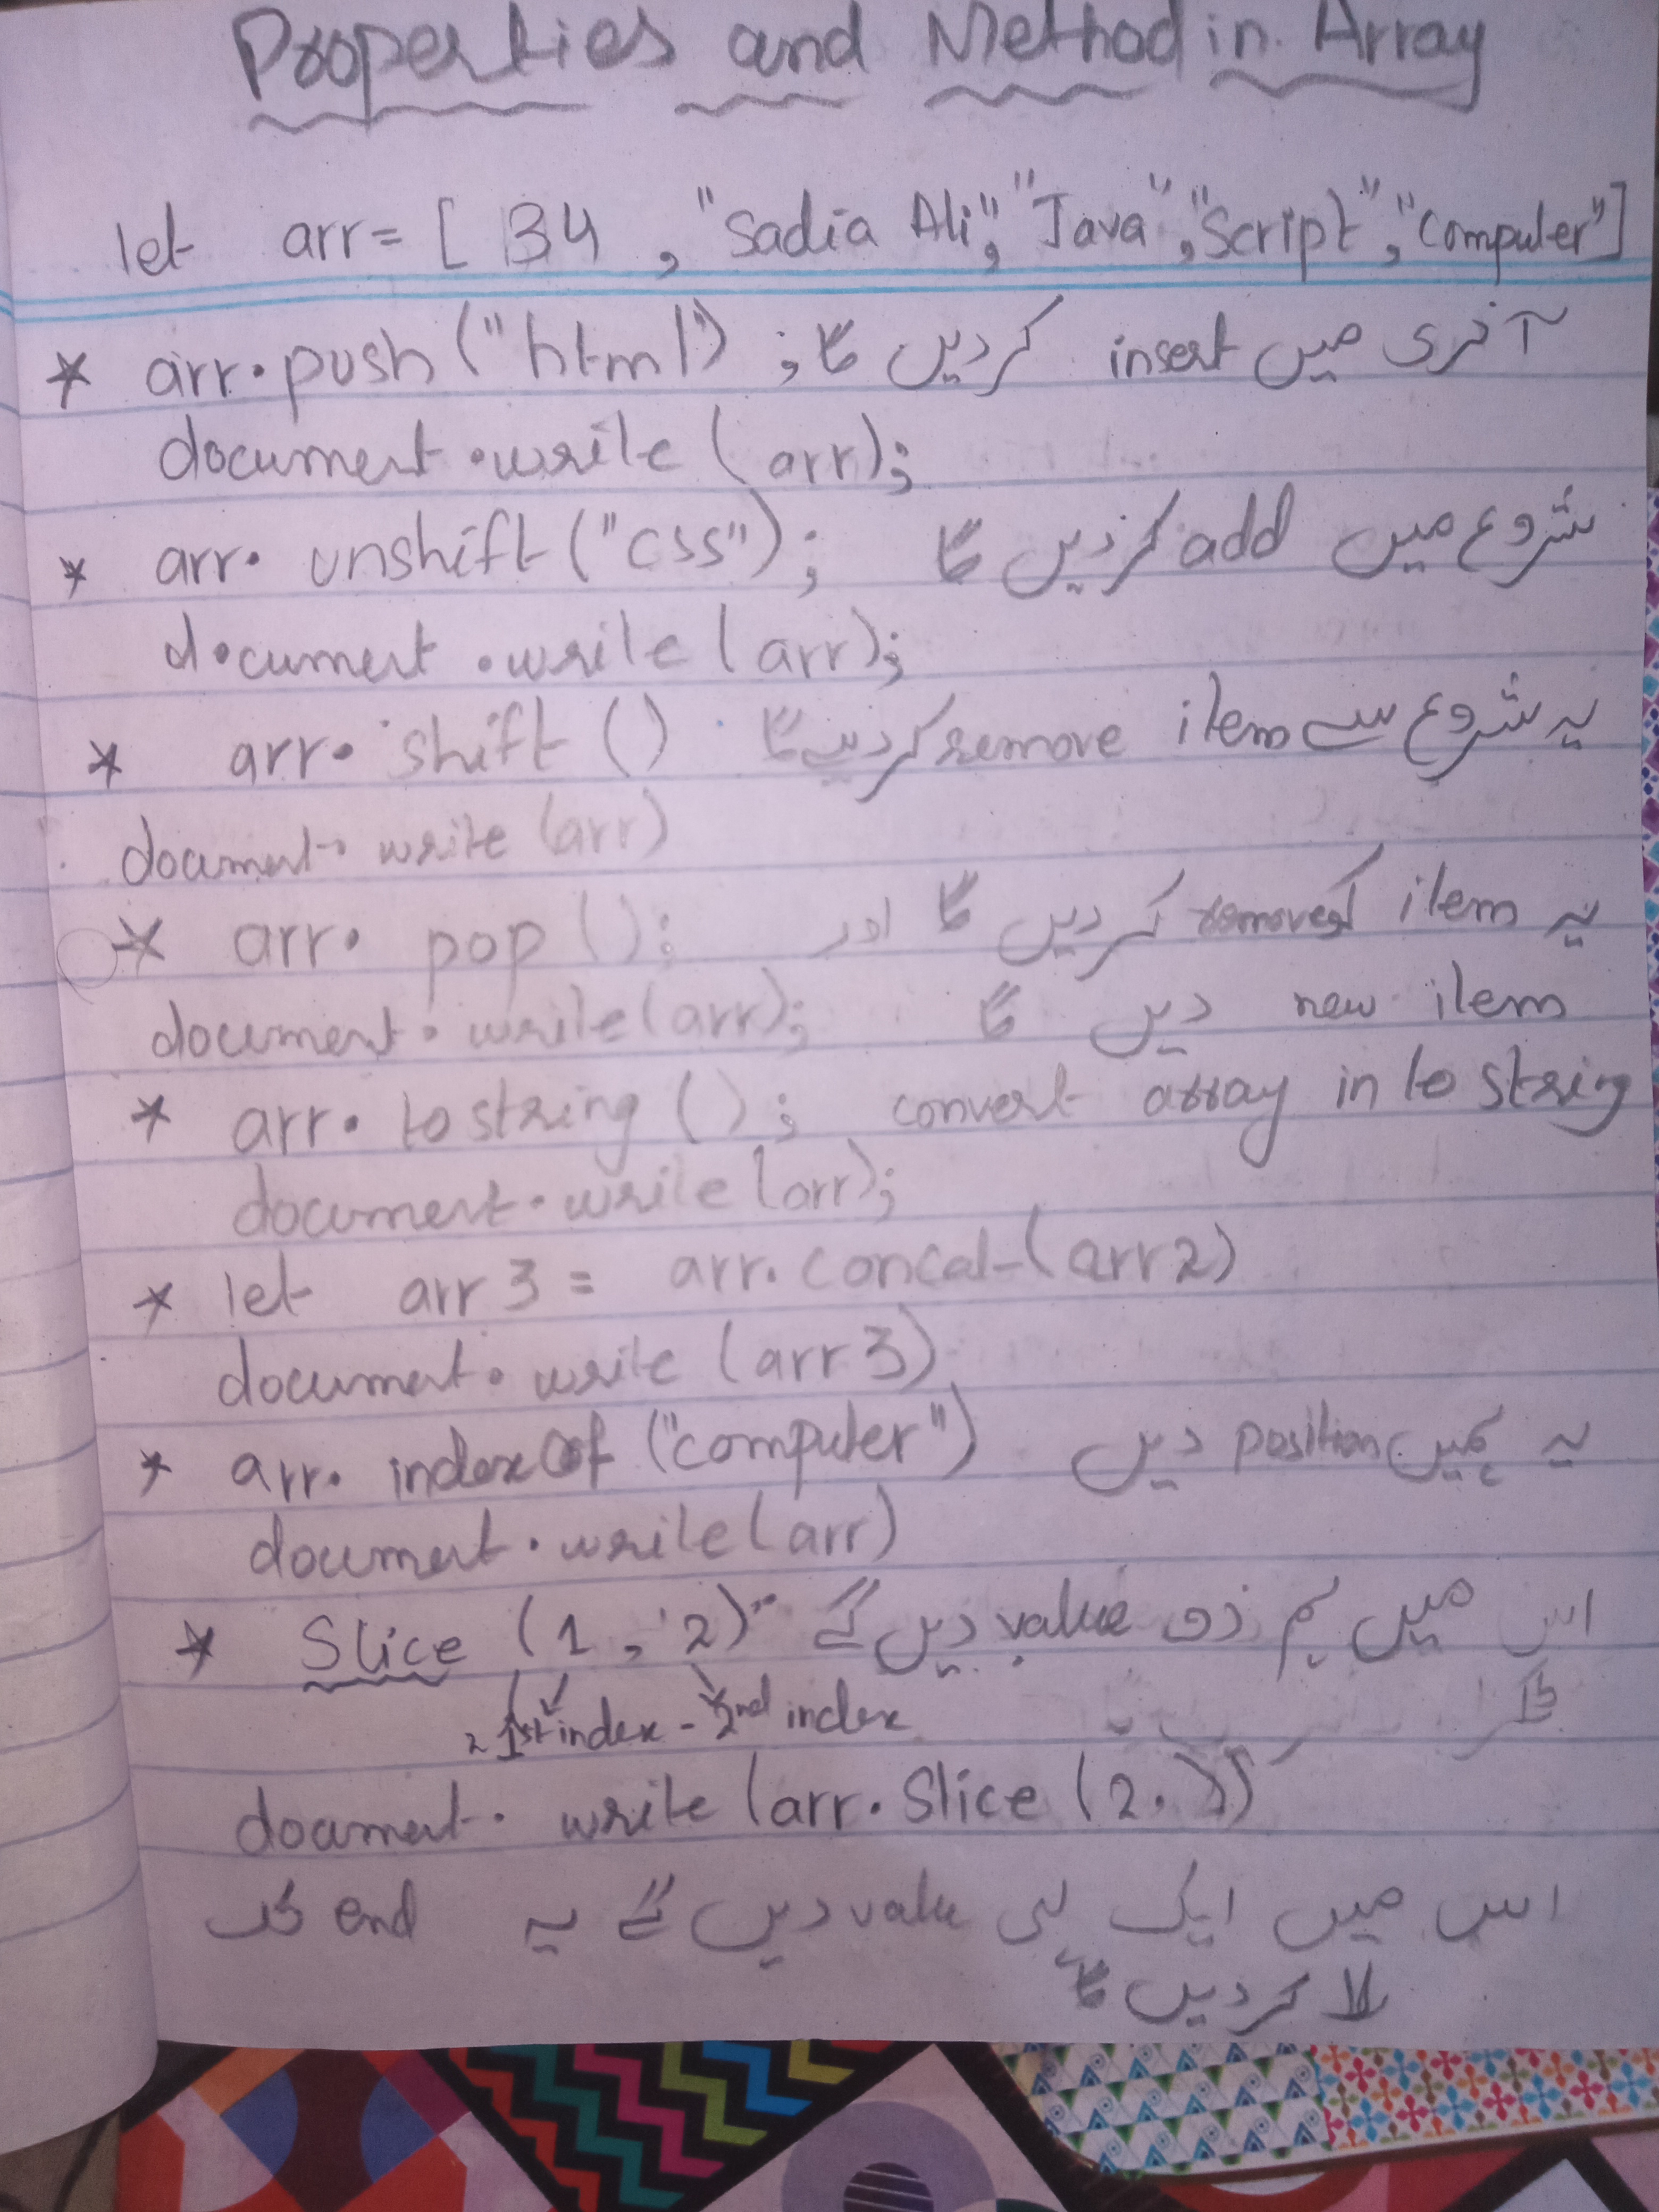 Properties and Method in Array
let arr= [ 34 , "Sadia Ali", "Java", "Script", "Computer"]
* arr.push ("html") ; آخری میں insert کردیں گا
document.write (arr);
* arr. unshift ("css"); شروع میں add کردیں گا
document.write (arr);
* arr. shift () یہ شروع سے item remove کردیں گا
document.write (arr)
* arr. pop (); یہ item کو remove کردیں گا اور
document.write (arr); new item دیں گا
* arr. to string (); convert array in to string
document.write (arr);
* let arr 3 = arr.concat (arr2)
document.write (arr 3)
* arr. indexOf ("computer") یہ ہمیں position دیں
document.write (arr)
* Slice (1 , 2) اس میں ہم دو value دیں گے
1st index - 2nd index
document. write (arr. Slice (2, ))
اس میں ایک ہی value دیں گے یہ end تک
لا کردیں گا